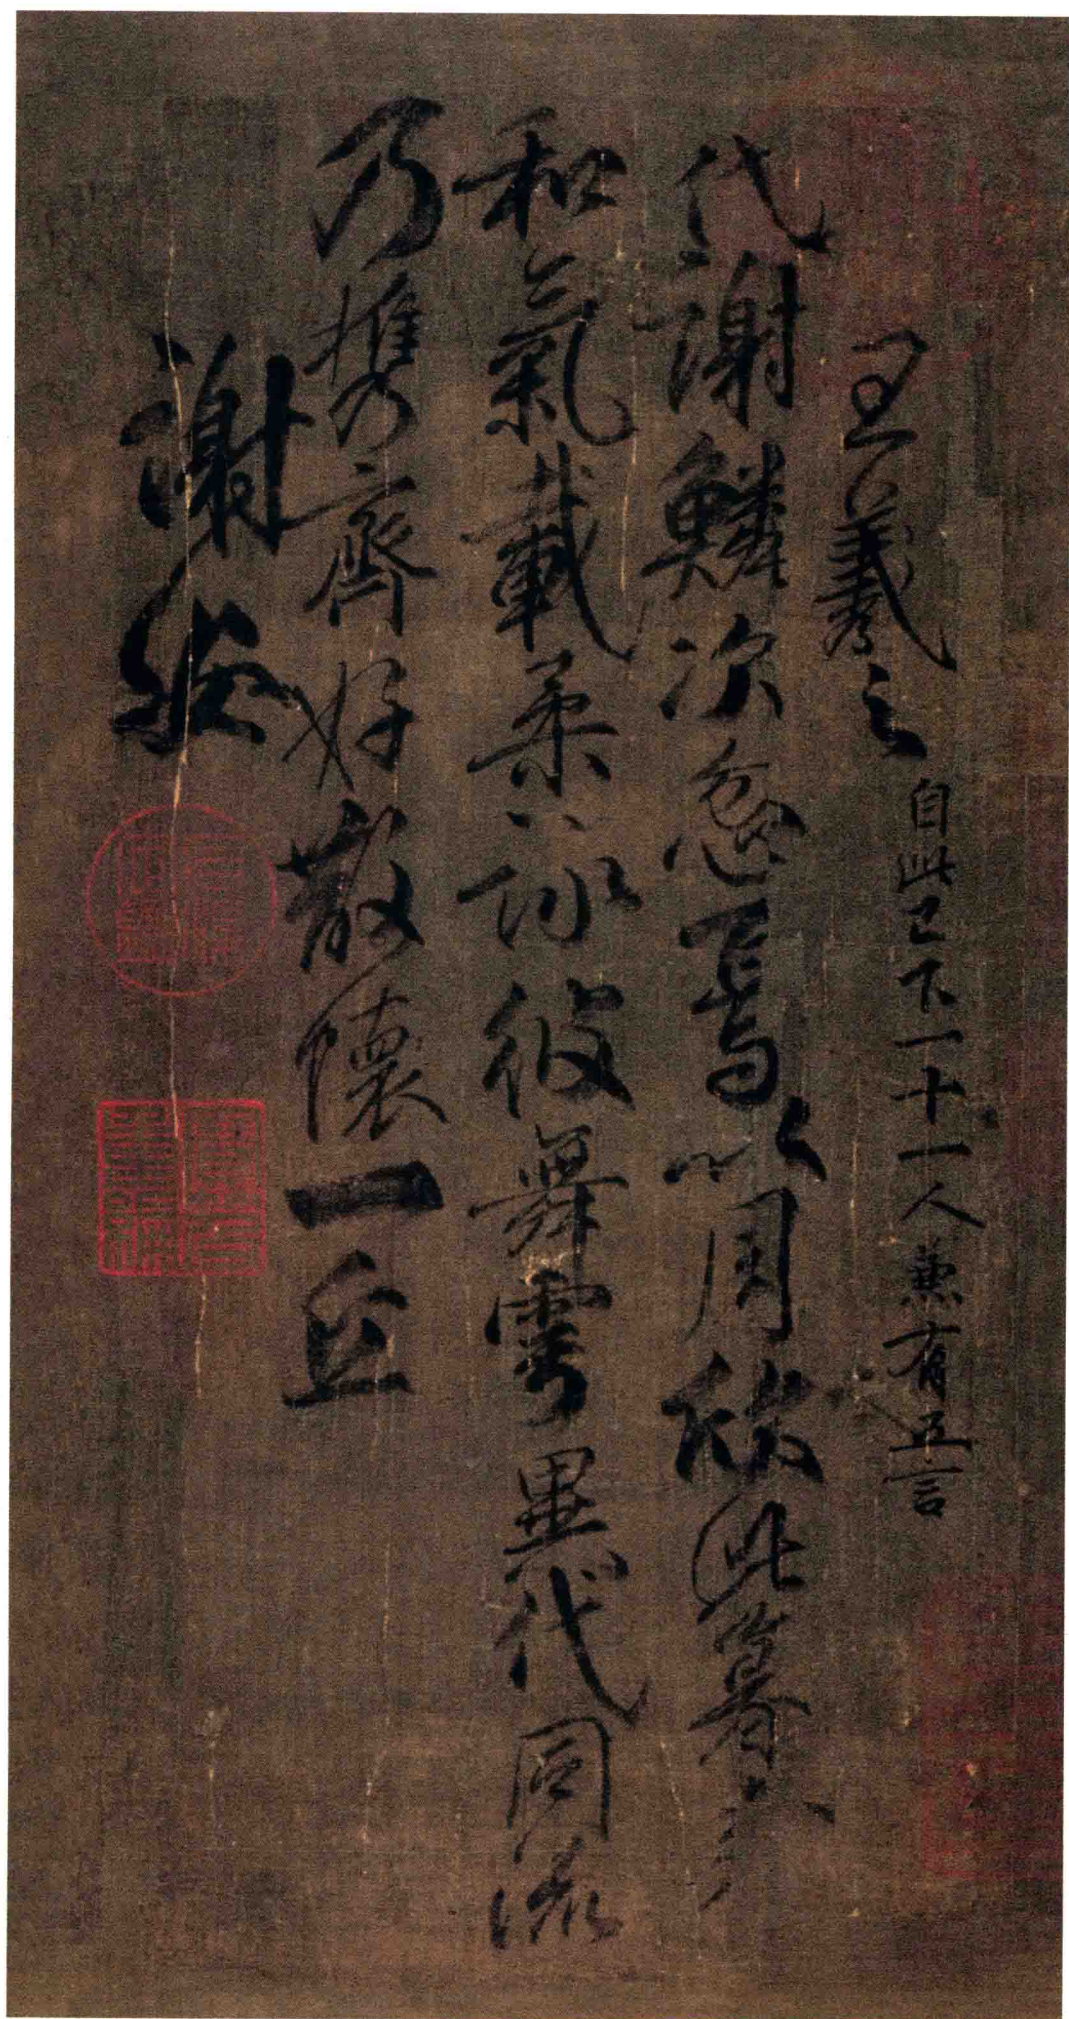 王羲之 自此已下一十一人兼有五言
代謝鱗次忽焉以周欣此暮春
和氣載柔詠彼舞雩異代同流
乃携齊好散懷一丘
謝安